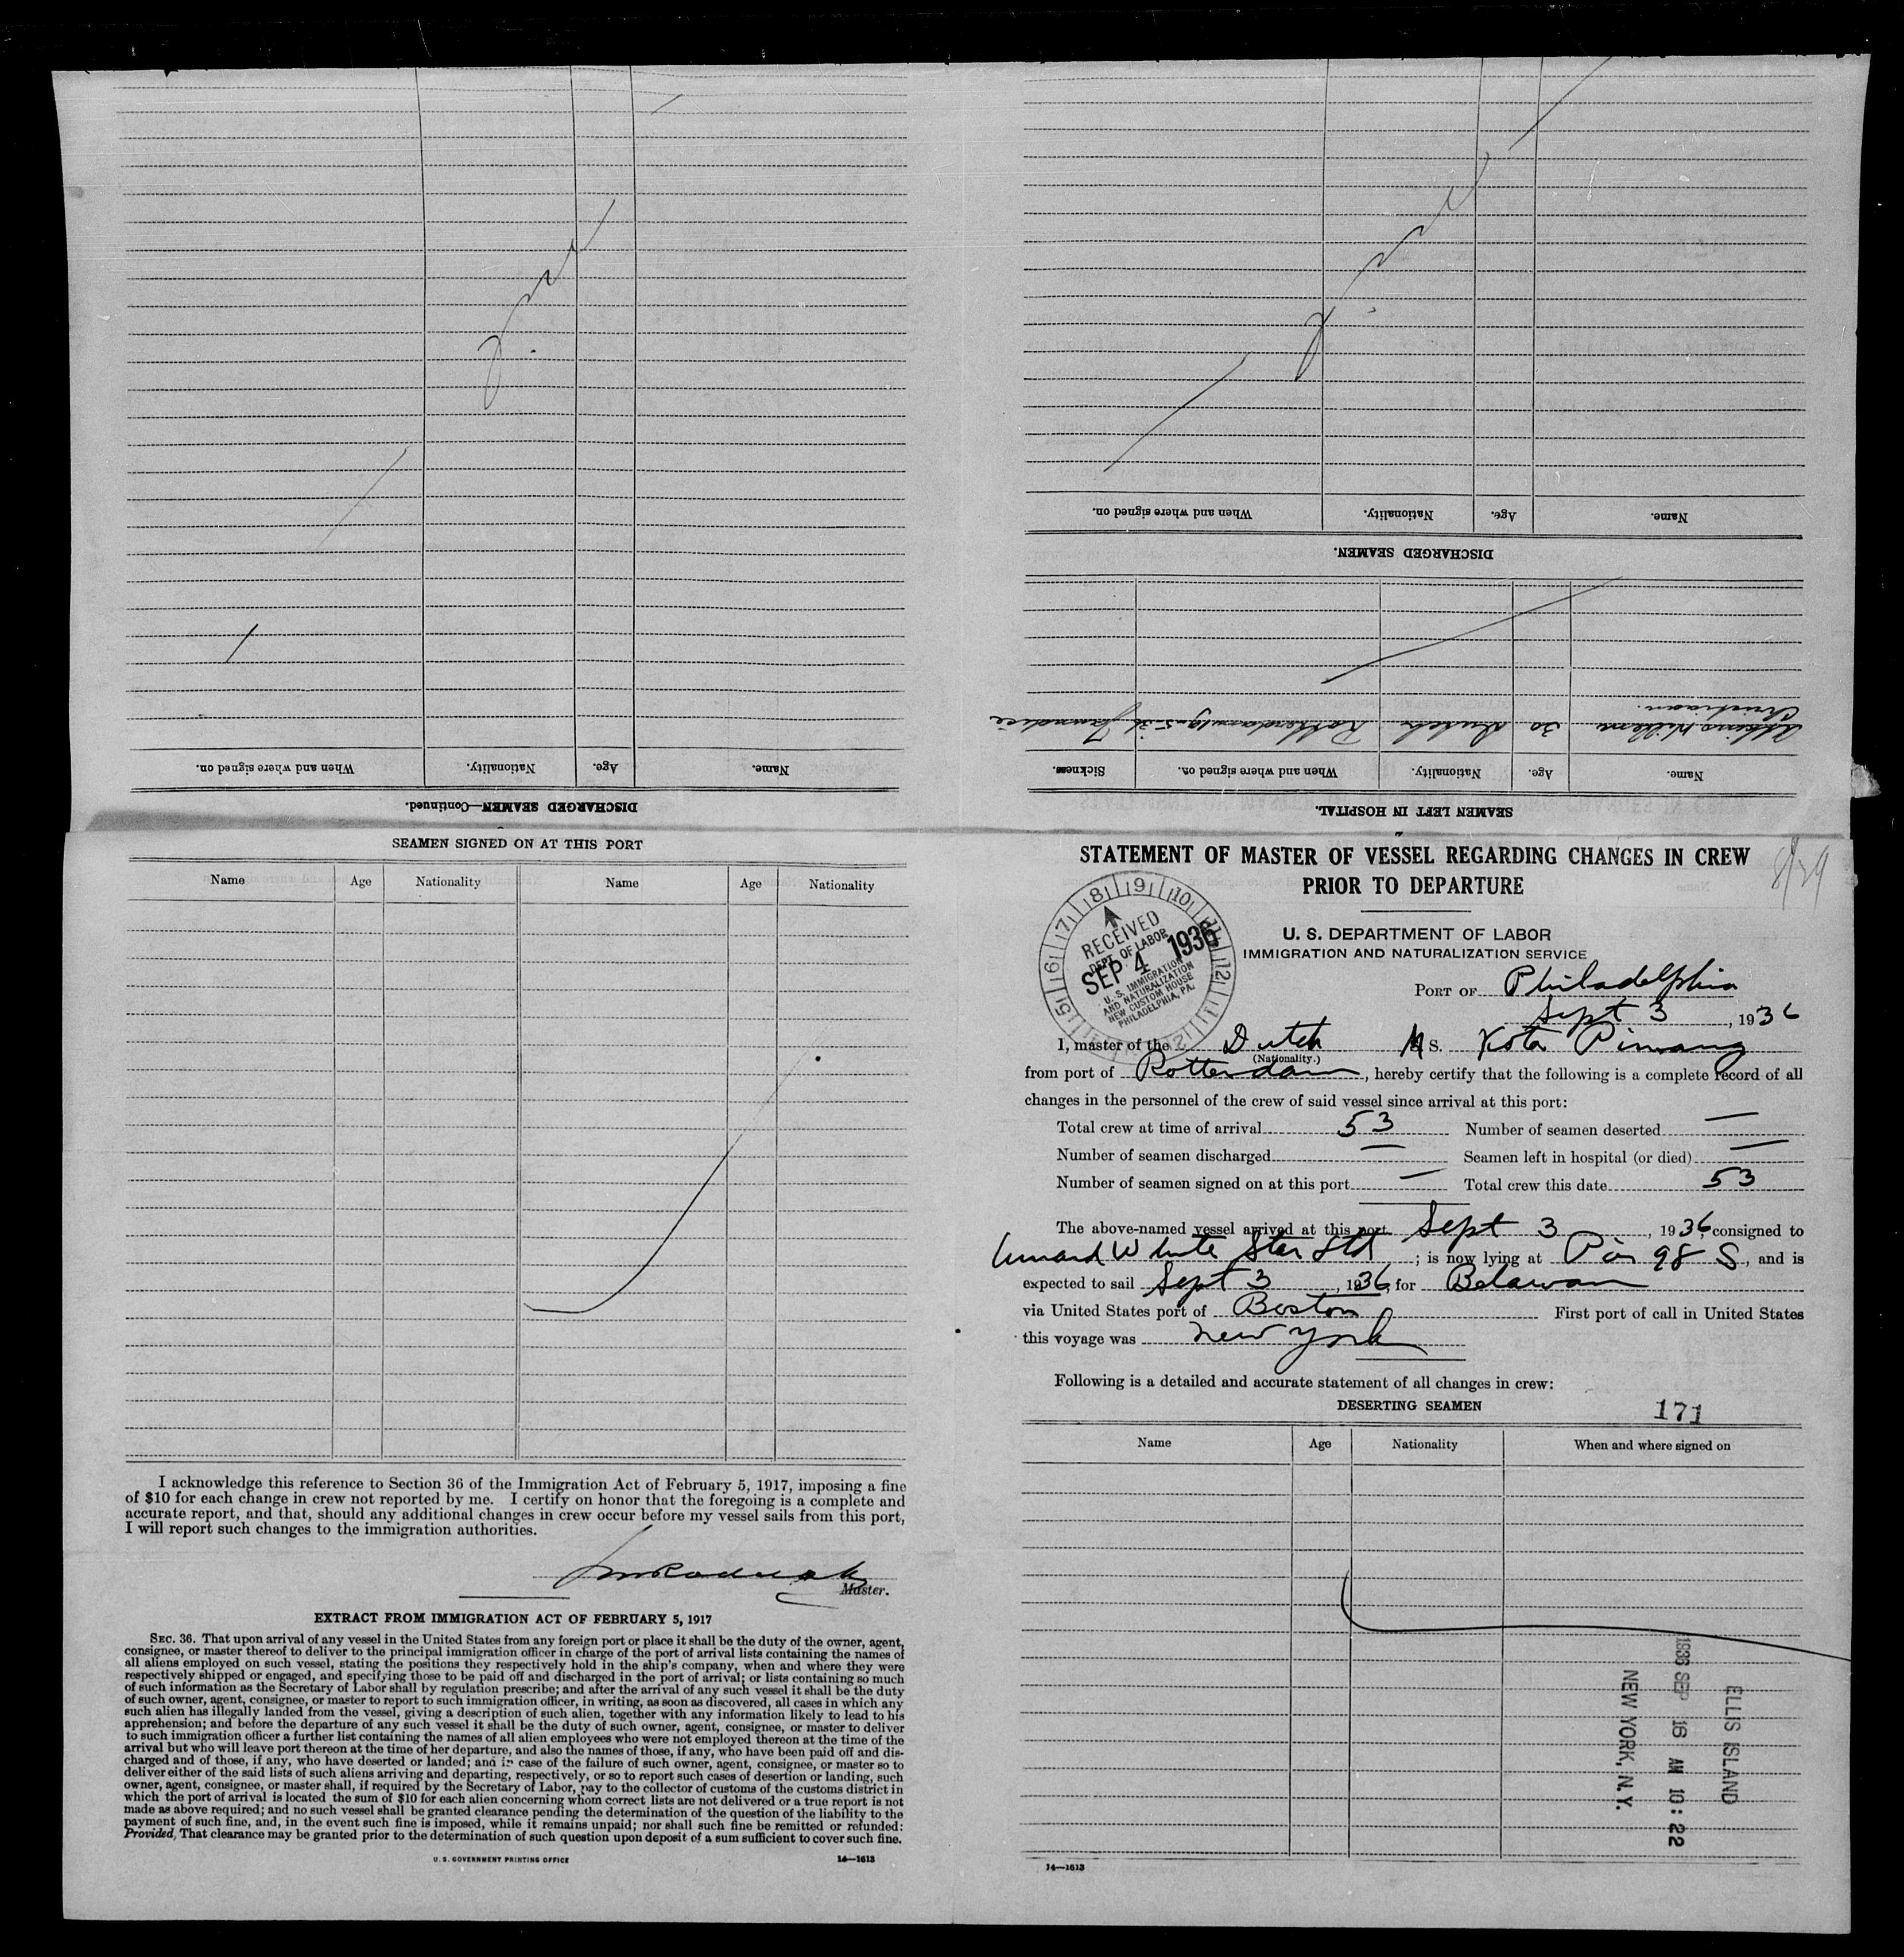 DISCHARGED SEAMEN—Continued.
Name. Age. Nationality. When and where signed on.
SEAMEN LEFT IN HOSPITAL.
Name. Age. Nationality. When and where signed on. Sickness.
Willem 30 Dutch Rotterdam Jaundice
Christiaan.
DISCHARGED SEAMEN.
Name. Age. Nationality. When and where signed on.
SEAMEN SIGNED ON AT THIS PORT
Name Age Nationality Name Age Nationality
I acknowledge this reference to Section 36 of the Immigration Act of February 5, 1917, imposing a fine
of $10 for each change in crew not reported by me. I certify on honor that the foregoing is a complete and
accurate report, and that, should any additional changes in crew occur before my vessel sails from this port,
I will report such changes to the immigration authorities.
Master.
EXTRACT FROM IMMIGRATION ACT OF FEBRUARY 5, 1917
SEC. 36. That upon arrival of any vessel in the United States from any foreign port or place it shall be the duty of the owner, agent,
consignee, or master thereof to deliver to the principal immigration officer in charge of the port of arrival lists containing the names of
all aliens employed on such vessel, stating the positions they respectively hold in the ship's company, when and where they were
respectively shipped or engaged, and specifying those to be paid off and discharged in the port of arrival; or lists containing so much
of such information as the Secretary of Labor shall by regulation prescribe; and after the arrival of any such vessel it shall be the duty
of such owner, agent, consignee, or master to report to such immigration officer, in writing, as soon as discovered, all cases in which any
such alien has illegally landed from the vessel, giving a description of such alien, together with any information likely to lead to his
apprehension; and before the departure of any such vessel it shall be the duty of such owner, agent, consignee, or master to deliver
to such immigration officer a further list containing the names of all alien employees who were not employed thereon at the time of the
arrival but who will leave port thereon at the time of her departure, and also the names of those, if any, who have been paid off and dis-
charged and of those, if any, who have deserted or landed; and in case of the failure of such owner, agent, consignee, or master so to
deliver either of the said lists of such aliens arriving and departing, respectively, or so to report such cases of desertion or landing, such
owner, agent, consignee, or master shall, if required by the Secretary of Labor, pay to the collector of customs of the customs district in
which the port of arrival is located the sum of $10 for each alien concerning whom correct lists are not delivered or a true report is not
made as above required; and no such vessel shall be granted clearance pending the determination of the question of the liability to the
payment of such fine, and, in the event such fine is imposed, while it remains unpaid; nor shall such fine be remitted or refunded:
Provided, That clearance may be granted prior to the determination of such question upon deposit of a sum sufficient to cover such fine.
U. S. GOVERNMENT PRINTING OFFICE 14—1613
STATEMENT OF MASTER OF VESSEL REGARDING CHANGES IN CREW
PRIOR TO DEPARTURE
8/29
U. S. DEPARTMENT OF LABOR
IMMIGRATION AND NATURALIZATION SERVICE
RECEIVED
DEPT. OF LABOR
SEP 4 1936
U. S. IMMIGRATION
AND NATURALIZATION
NEW CUSTOM HOUSE
PHILADELPHIA, PA.
PORT OF Philadelphia
Sept 3, 1936
I, master of the Dutch M S. Kota Pinang
(Nationality.)
from port of Rotterdam, hereby certify that the following is a complete record of all
changes in the personnel of the crew of said vessel since arrival at this port:
Total crew at time of arrival 53 Number of seamen deserted —
Number of seamen discharged — Seamen left in hospital (or died) —
Number of seamen signed on at this port — Total crew this date 53
The above-named vessel arrived at this port Sept 3, 1936, consigned to
Cunard White Star Ltd; is now lying at Pier 98 S, and is
expected to sail Sept 3, 1936, for Belawan
via United States port of Boston First port of call in United States
this voyage was New York
Following is a detailed and accurate statement of all changes in crew:
DESERTING SEAMEN 171
Name Age Nationality When and where signed on
ELLIS ISLAND
1936 SEP 16 AM 10:22
NEW YORK, N.Y.
14—1613